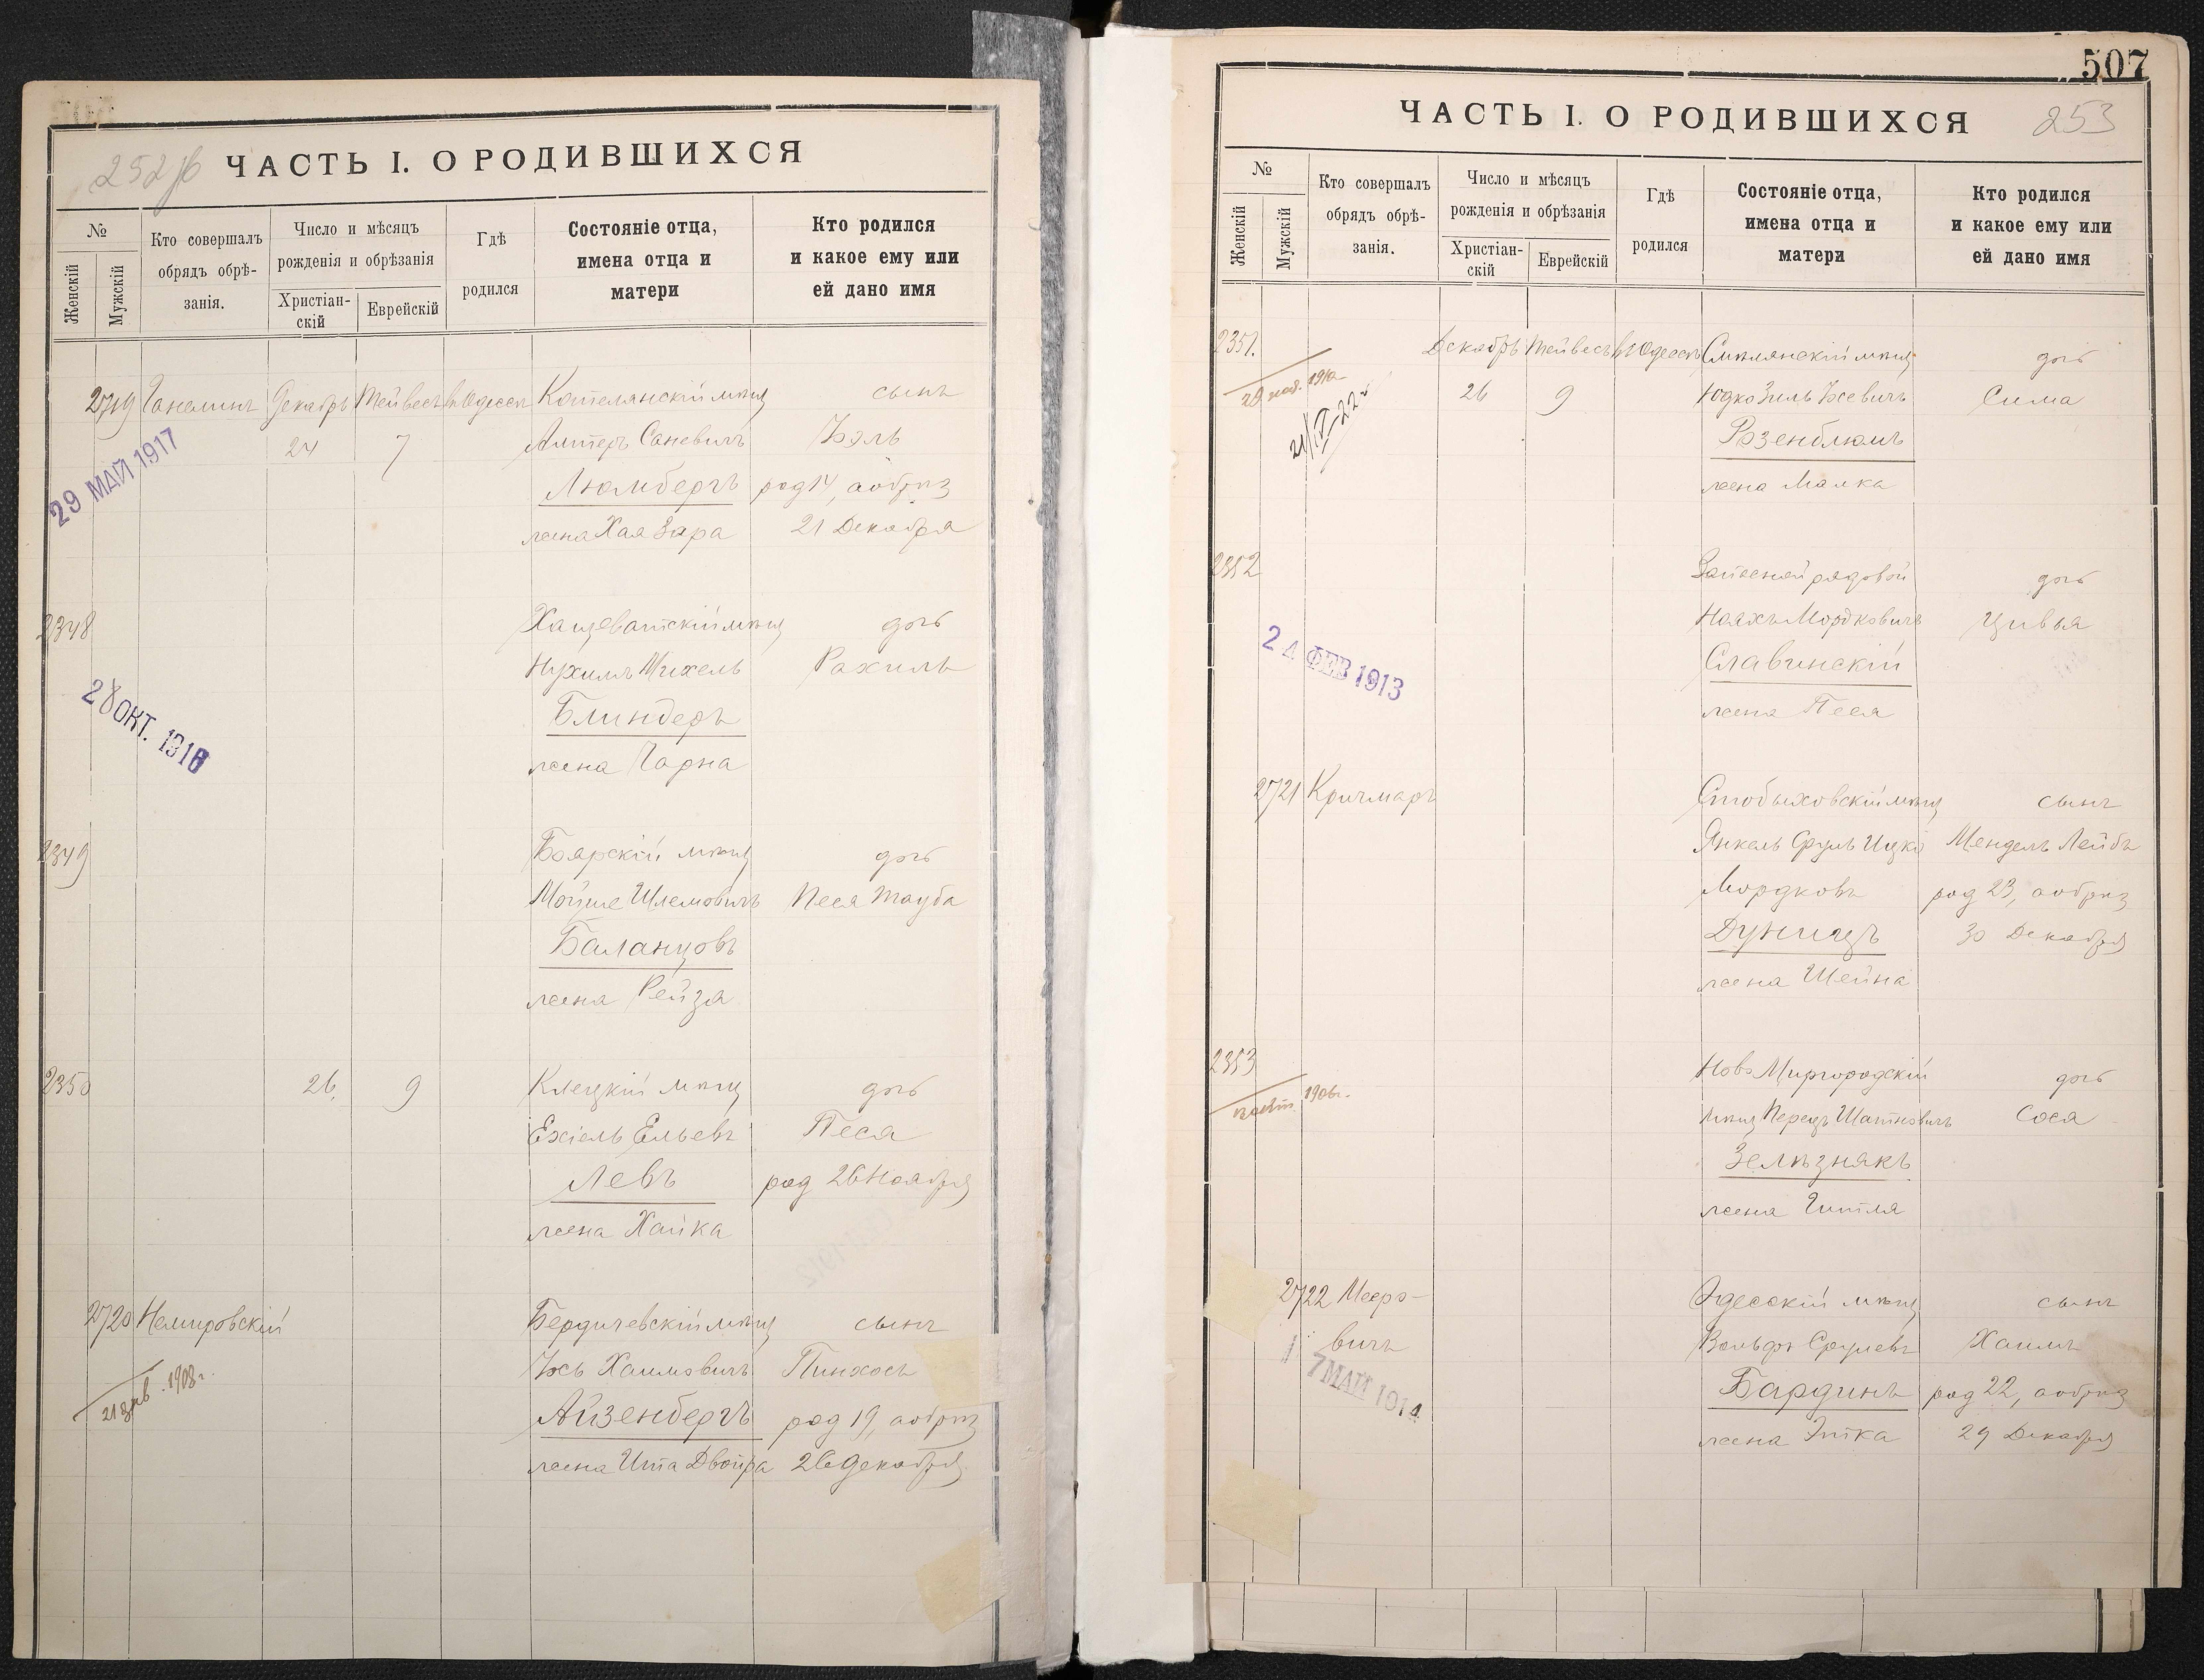 252 об
ЧАСТЬ I. О РОДИВШИХСЯ
№
Женскій
Мужскій
Кто совершалъ
обрядъ обрѣ-
занія.
Число и мѣсяцъ
рожденія и обрѣзанія
Христіан-
скій
Еврейскій
Гдѣ
родился
Состояніе отца,
имена отца и
матери
Кто родился
и какое ему или
ей дано имя
2719 Ганелинъ Декабрь Тейвесъ въ Одессѣ Котелянскій мѣщ сынъ
24 7 Алтеръ Саневичъ Іоэль
Люмбергъ род 14, а обрѣз
жена Хая Зара 21 Декабря
29 МАЙ 1917
2348 Хащеватскій мѣщ дочь
Нухимъ Михель Рахиль
Блиндеръ
жена Чарна
28 ОКТ. 1916
2349 Боярскій мѣщ дочь
Мойше Шлемовичъ Песя Тауба
Баланцовъ
жена Рейза
2350 26 9 Клецкій мѣщ дочь
Ехіель Ельевъ Песя
Левъ род 26 Ноября
жена Хайка
2720 Немировскій Бердичевскій мѣщ сынъ
Іось Хаимовичъ Пинхосъ
21 янв. 1908 г.
Айзенбергъ род 19, а обрѣз
жена Ита Двойра 26 Декабря
507
253
ЧАСТЬ I. О РОДИВШИХСЯ
№
Женскій
Мужскій
Кто совершалъ
обрядъ обрѣ-
занія.
Число и мѣсяцъ
рожденія и обрѣзанія
Христіан-
скій
Еврейскій
Гдѣ
родился
Состояніе отца,
имена отца и
матери
Кто родился
и какое ему или
ей дано имя
2351. Декабрь Тейвесъ въ Одессѣ Смилянскій мѣщ дочь
26 9 Юдко Зиль Іосевичъ Сима
Розенблюмъ
жена Малка
21/IV-22 г.
2352 Запасной рядовой дочь
Ноахъ Мордковичъ Цивья
Славинскій
жена Песя
24 ФЕВ 1913
2721 Кричмаръ Стобыховскій мѣщ сынъ
Янкель Сруль Ицко Мендель Лейбъ
Мордковъ род 23, а обрѣз
Дуницъ 30 Декабря
жена Шейна
2353 Ново Миргородскій дочь
мѣщ Перецъ Шатновичъ Сося
1906 г.
Зелѣзнякъ
жена Гитля
2722 Мееро- Одесскій мѣщ сынъ
вичъ Вольфъ Срулевъ Хаимъ
7 МАЙ 1914
Бардинъ род 22, а обрѣз
жена Этка 29 Декабря